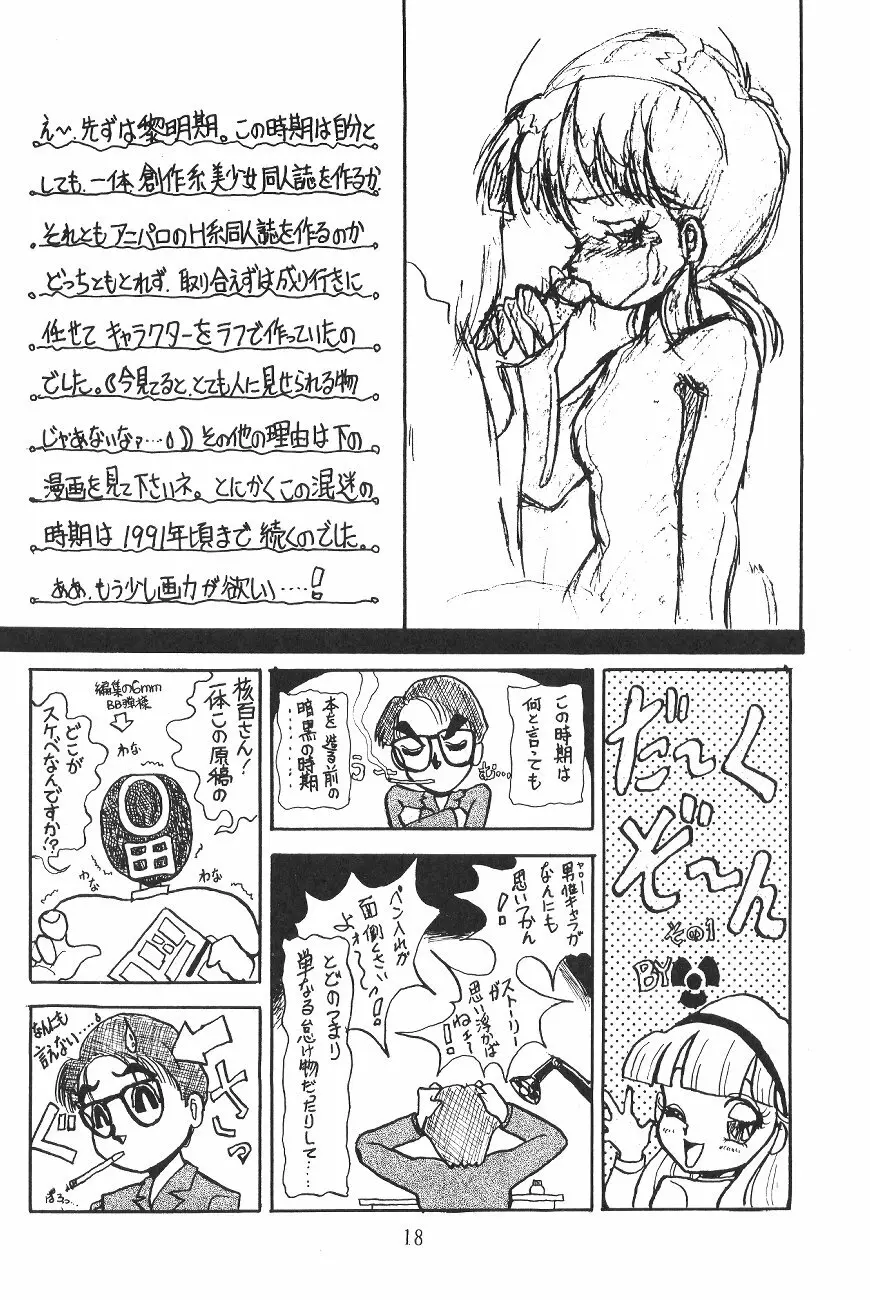 え〜、先ずは黎明期。この時期は自分と
しても、一体創作系美少女同人誌を作るか
それともアニパロのH系同人誌を作るのか
どっちともとれず、取り合えずは成り行きに
任せてキャラクターをラフで作っていたの
でした。(今見てると、とても人に見せられる物
じゃあないなァ…)その他の理由は下の
漫画を見て下さいネ。とにかくこの混迷の
時期は1991年頃まで続くのでした。
ああ、もう少し画力が欲しい……!
だ〜く
ぞ〜ん
その1
BY
この時期は
何と言っても
本を造る前の
暗黒の時期
……
う
む…
男性キャラが
なんにも
思いつかん
!!
ストーリー
が
思い浮かば
ねェー
!!
ペン入れが
面倒くさい
よォ〜!!
とどのつまり
単なる怠け物だったりして……
核百さん!
一体この原稿の
どこが
スケベなんですか!?
編集の6mm
BB弾様
わな
わな
わな
なんにも
言えない……
ぐ
さっ
ぽろっ…
18